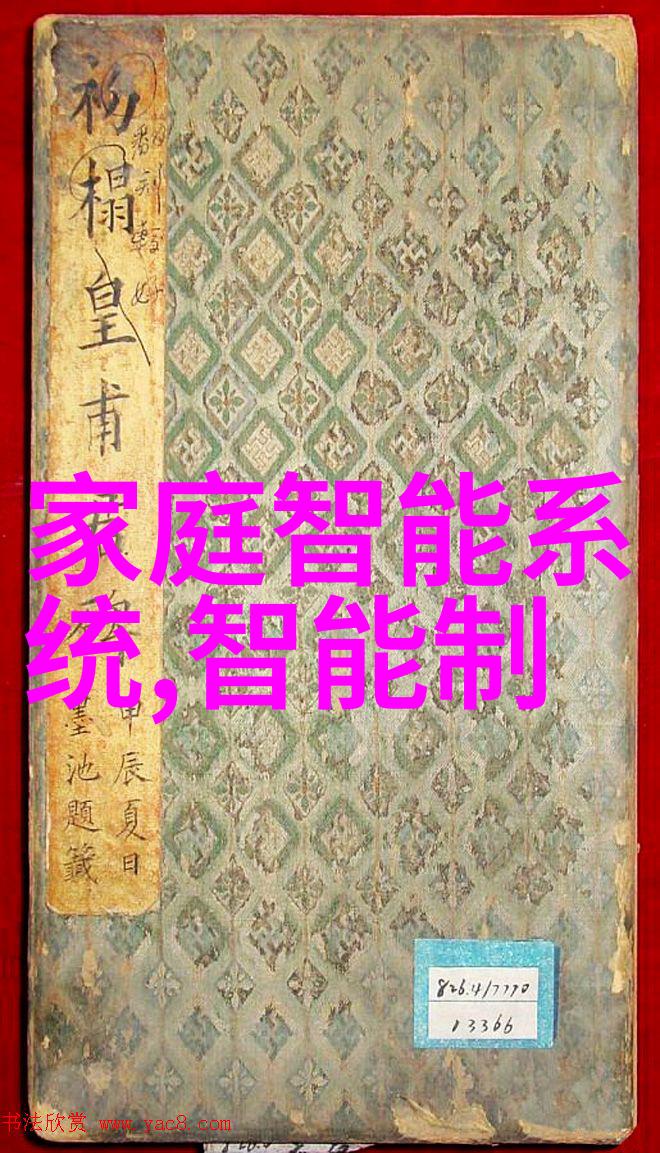 初榻皇甫君碑
甲辰夏日
墨池題籤
家庭智能系
统,智能制
826.4/7770
13366
书法欣赏 www.yac8.com